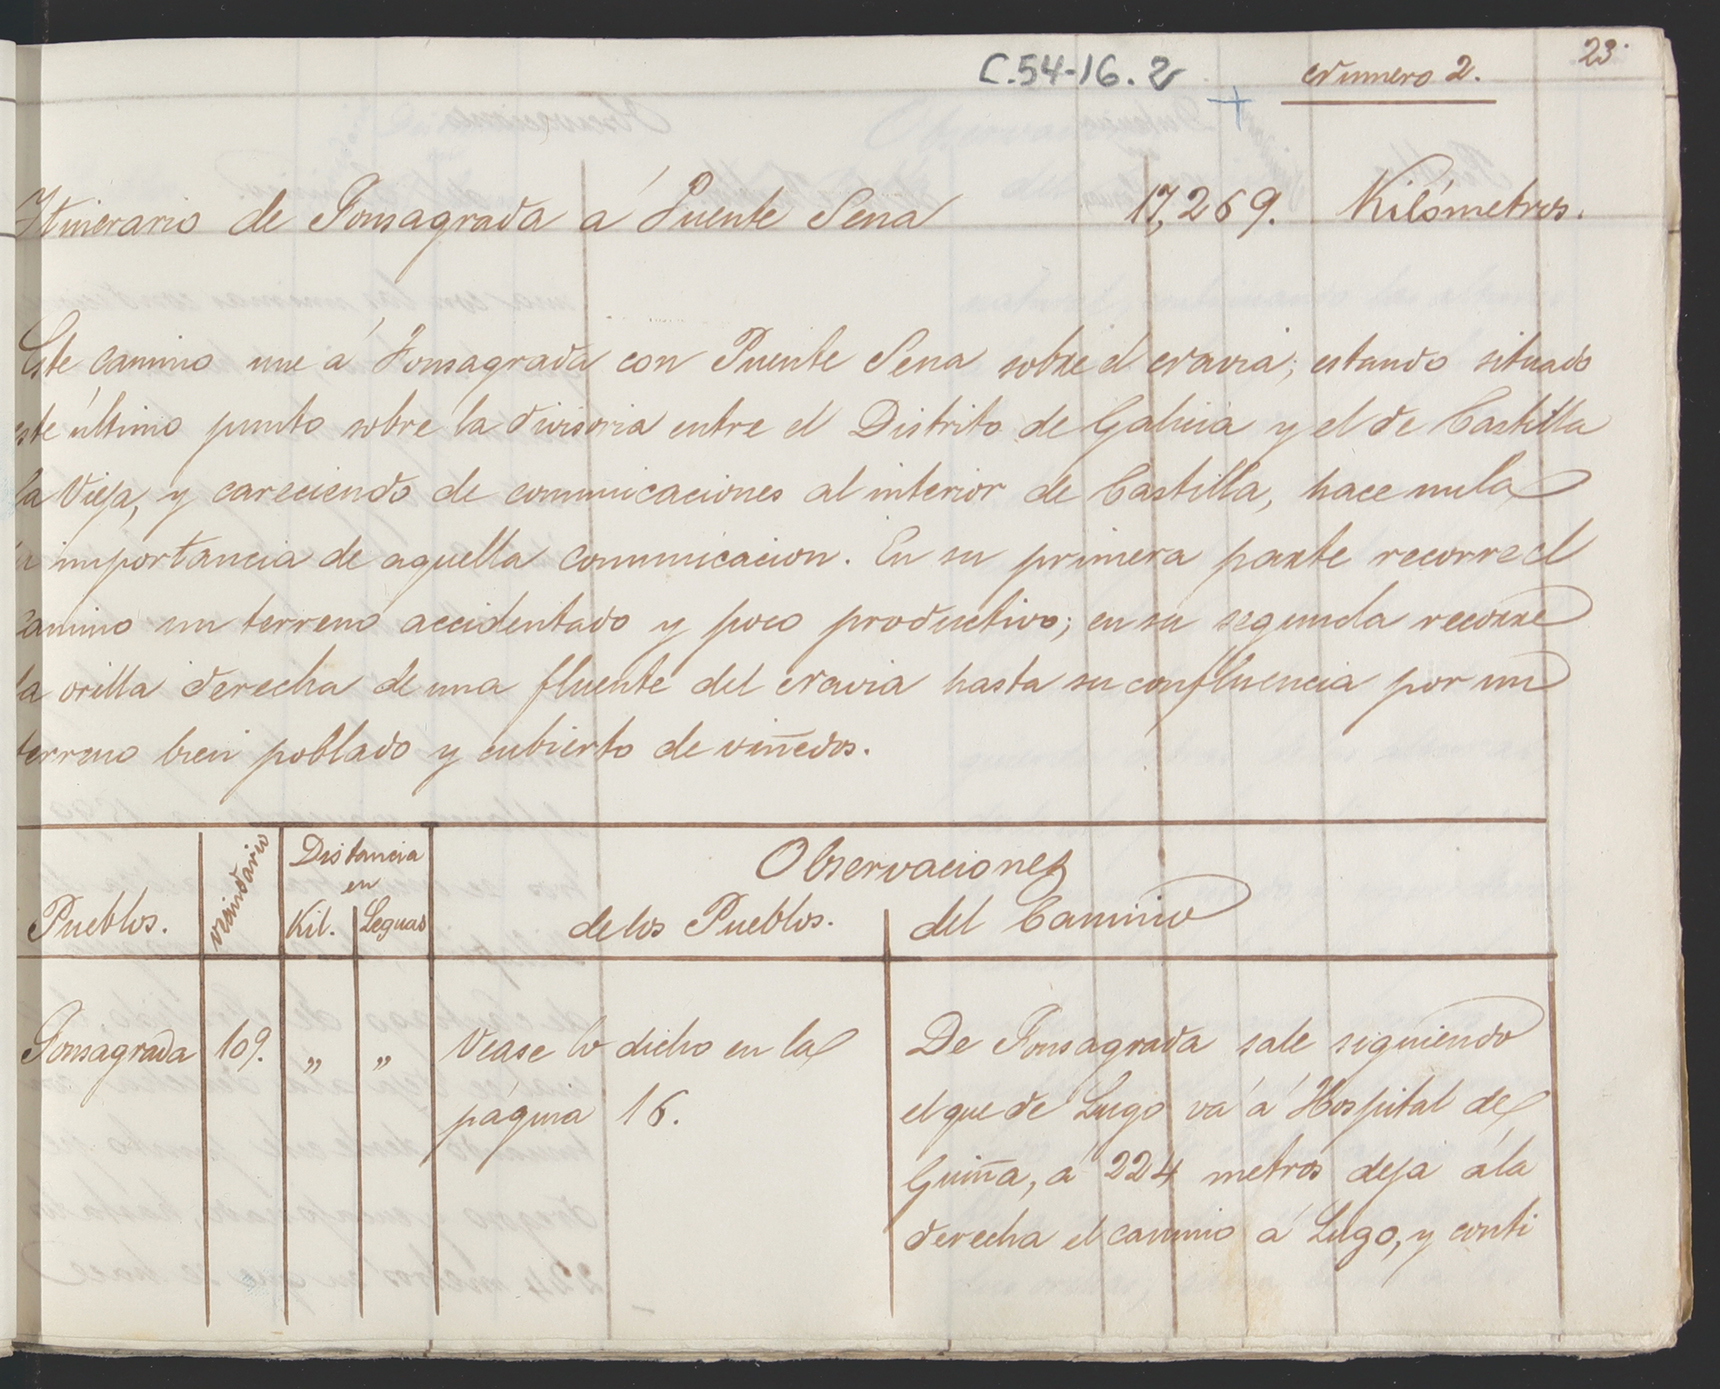 C.54-16.2
Número 2.
23.
Itinerario de Fonsagrada á Puente Sena 17,269. Kilómetros.
Este camino une á Fonsagrada con Puente Sena sobre el Navia; estando situado
este último punto sobre la divisoria entre el Distrito de Galicia y el de Castilla
la Vieja, y careciendo de comunicaciones al interior de Castilla, hace nula
la importancia de aquella comunicacion. En su primera parte recorre el
camino un terreno accidentado y poco productivo; en su segunda recorre
la orilla derecha de una fluente del Navia hasta su confluencia por un
terreno bien poblado y cubierto de viñedos.
Pueblos.
Vecindario
Distancia
en
Kil.
Leguas
Observaciones
de los Pueblos.
del Camino
Fonsagrada 109. „ „
Vease lo dicho en la
página 16.
De Fonsagrada sale siguiendo
el que de Lugo vá á Hospital de
Guiña, á 224 metros deja á la
derecha el camino á Lugo, y conti